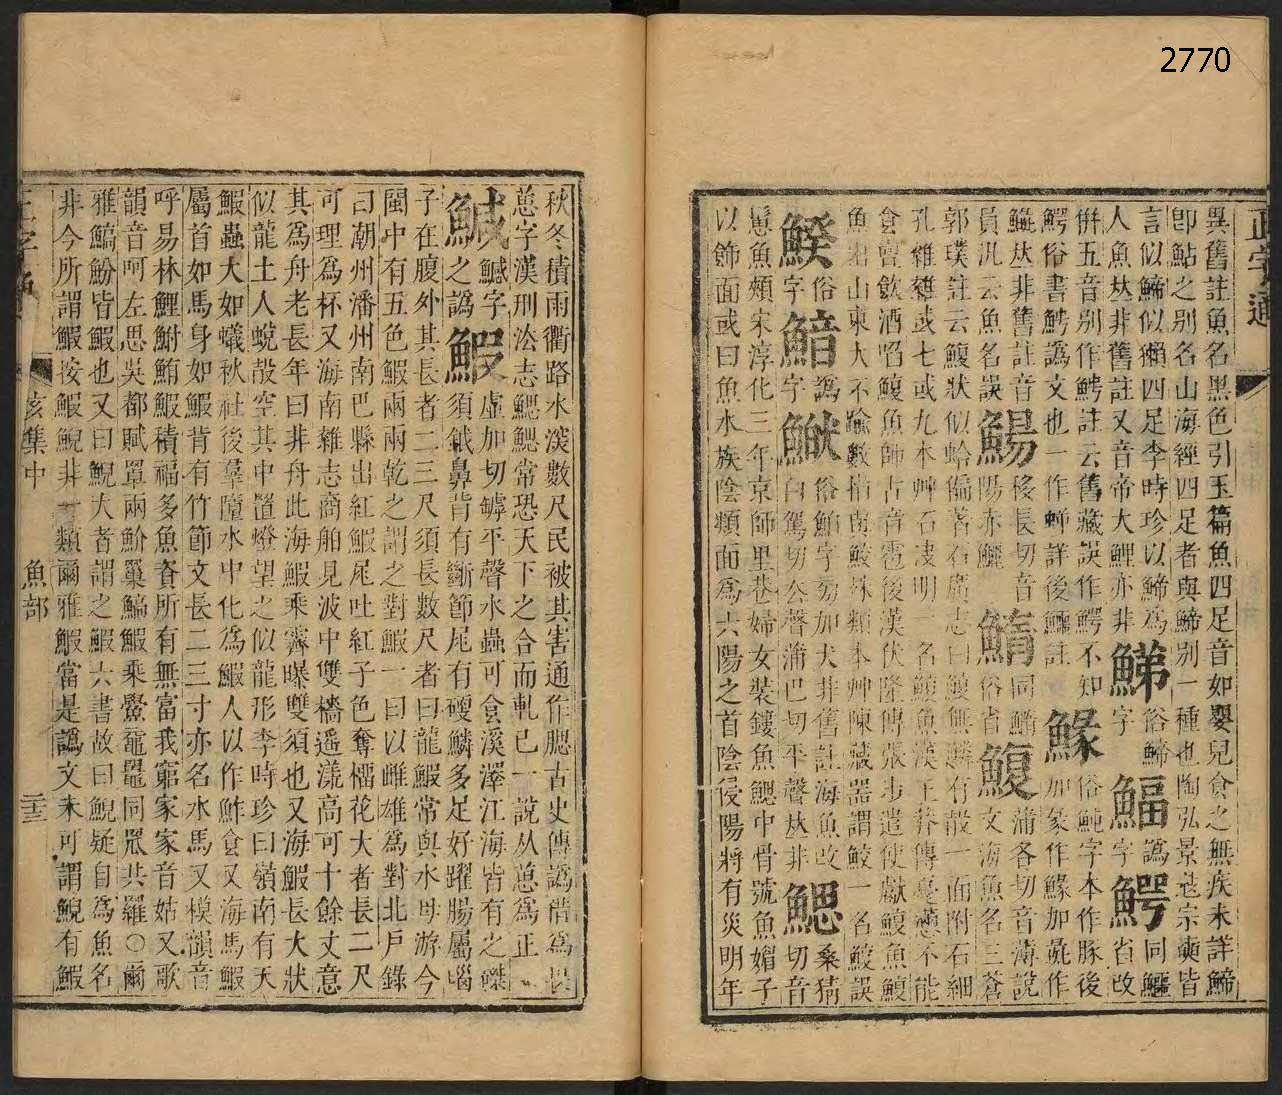 2770
正字通
異舊註魚名黑色引玉篇魚四足音如嬰兒食之無疾未詳鯑
卽鮎之别名山海經四足者與鯑别一種也陶弘景宼宗奭皆
言似鯑似獺四足李時珍以鯑爲 鮷俗鯑字 鰏譌字 鰐同鱷省改
人魚𠀤非舊註又音帝大鯉亦非
倂五音别作鰐註云舊藏誤作鰐不知 鯑俗魨字本作豚後
鰐俗書鰐譌文也一作 詳後鱷註 加彖作 加 作
鱷𠀤非舊註音 鰑移長切音陽赤鱺 鰖同鱅俗省 鰒蒲各切音薄說文海魚名三蒼
員沠云魚名誤
郭璞註云鰒狀似蛤偏著石廣志曰鰒無鱗有殻一面附石細
孔雜雜或七或九本艸石決明一名鰒魚漢王莽傳憂懣不能
食亶飲酒啗鰒魚師古音雹後漢伏隆傳張步遣使獻鰒魚鰒
魚出山東大不踰數指與鮫殊類本艸陳藏器謂鮫一名鰒誤
鰇俗字 𩹎譌字 𩹱俗鮂字 加犬非舊註海魚改白駕切 聲蒲巴切平聲𠀤非 鰓桑猜切音
慸魚頰宋淳化三年京師里巷婦女裝鏤魚鰓中骨號魚媚子
以飾面或曰魚水族陰類面爲六陽之首陰侵陽將有災明年
秋冬積雨衢路水溢數尺民被其害通作腮古史傳譌借爲
葸字漢刑法志鰓鰓常恐天下之合而軋已一說从葸爲正
鰔鱤字之譌 鰕虛加切罅平聲水蟲可食溪澤江海皆有之磔
須鉞鼻背有斷節尾有硬鱗多足好躍腸屬腦
子在腹外其長者二三尺須長數尺者曰龍鰕常與水母游今
閩中有五色鰕兩兩乾之謂之對鰕一曰以雌雄爲對北戶錄
曰潮州潘州南巴縣出紅鰕尾吐紅子色奪榴花大者長二尺
可理爲杯又海南雜志商舶見波中雙檣遥漾高可十餘丈意
其爲舟老長年曰非舟此海鰕乘霽曝雙須也又海鰕長大狀
似龍土人蛻殻空其中置燈望之似龍形李時珍曰嶺南有天
鰕蟲大如蟻秋社後羣墮水中化爲鰕人以作鮓食又海馬鰕
屬首如馬身如鰕背有竹節文長二三寸亦名水馬又模韻音
呼易林鯉鮒鮪鰕積福多魚資所有無富我窮家家音姑又歌
韻音呵左思吳都賦罩兩魪罺鰝鰕乘鱟黿鼉同罛共羅〇爾
雅鰝魵皆鰕也又曰鯢大者謂之鰕六書故曰鯢疑自爲魚名
非今所謂鰕按鰕鯢非一類爾雅鰕當是譌文未可謂鯢有鰕
正字通 亥集中 魚部 二十三